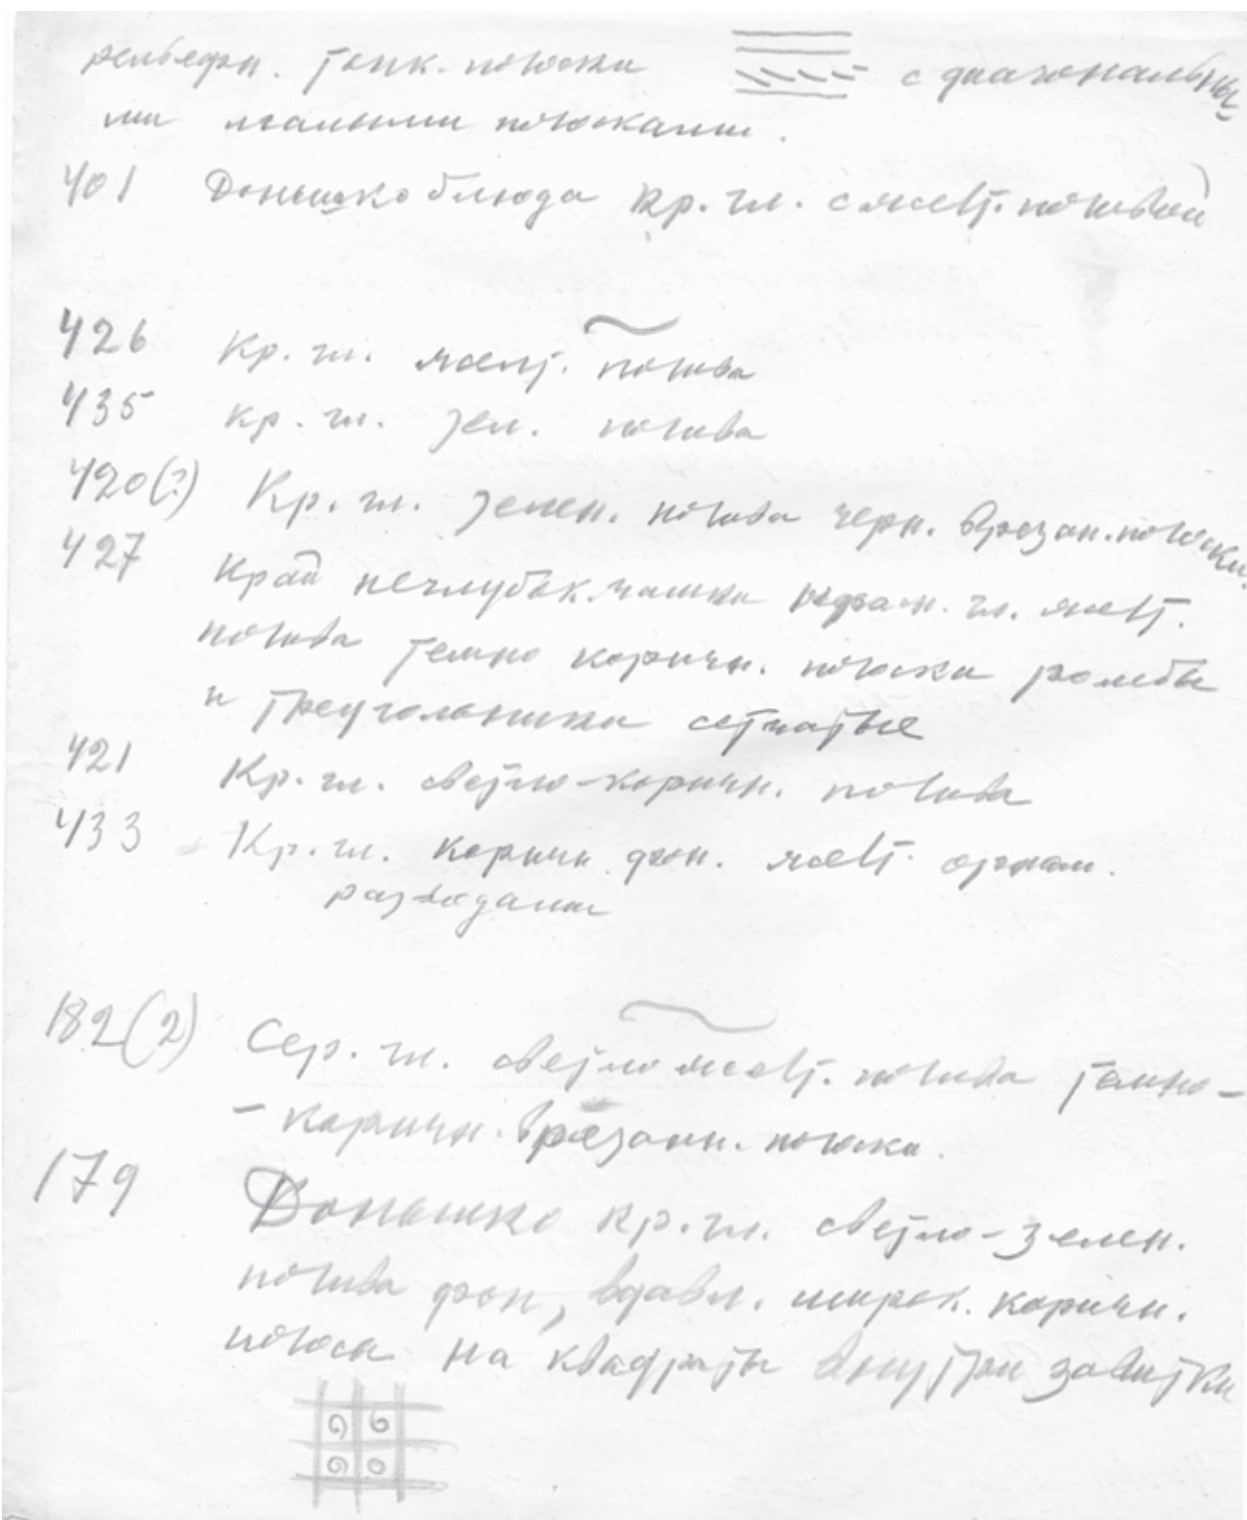 рельефн. тонк. полоски с диагональны
ми малыми полосками.
401 Донышко блюда кр. гл. с желт. поливой
426 Кр. гл. желт. полива
435 кр. гл. зел. полива
420(?) Кр. гл. зелен. полива черн. врезан. полоски.
427 Край неглубок. чашки красн. гл. желт.
полива темно коричн. полоски ромбы
и треугольники сетчатые
421 Кр. гл. светло-коричн. полива
433 Кр. гл. коричн фон. желт. орнам.
разводами
182(2) Сер. гл. светложелт. полива темно-
- коричн. врезанн. полоски.
179 Донышко кр. гл. светло-зелен.
полива фон, вдавл. широк. коричн.
полосы на квадраты внутри завитки